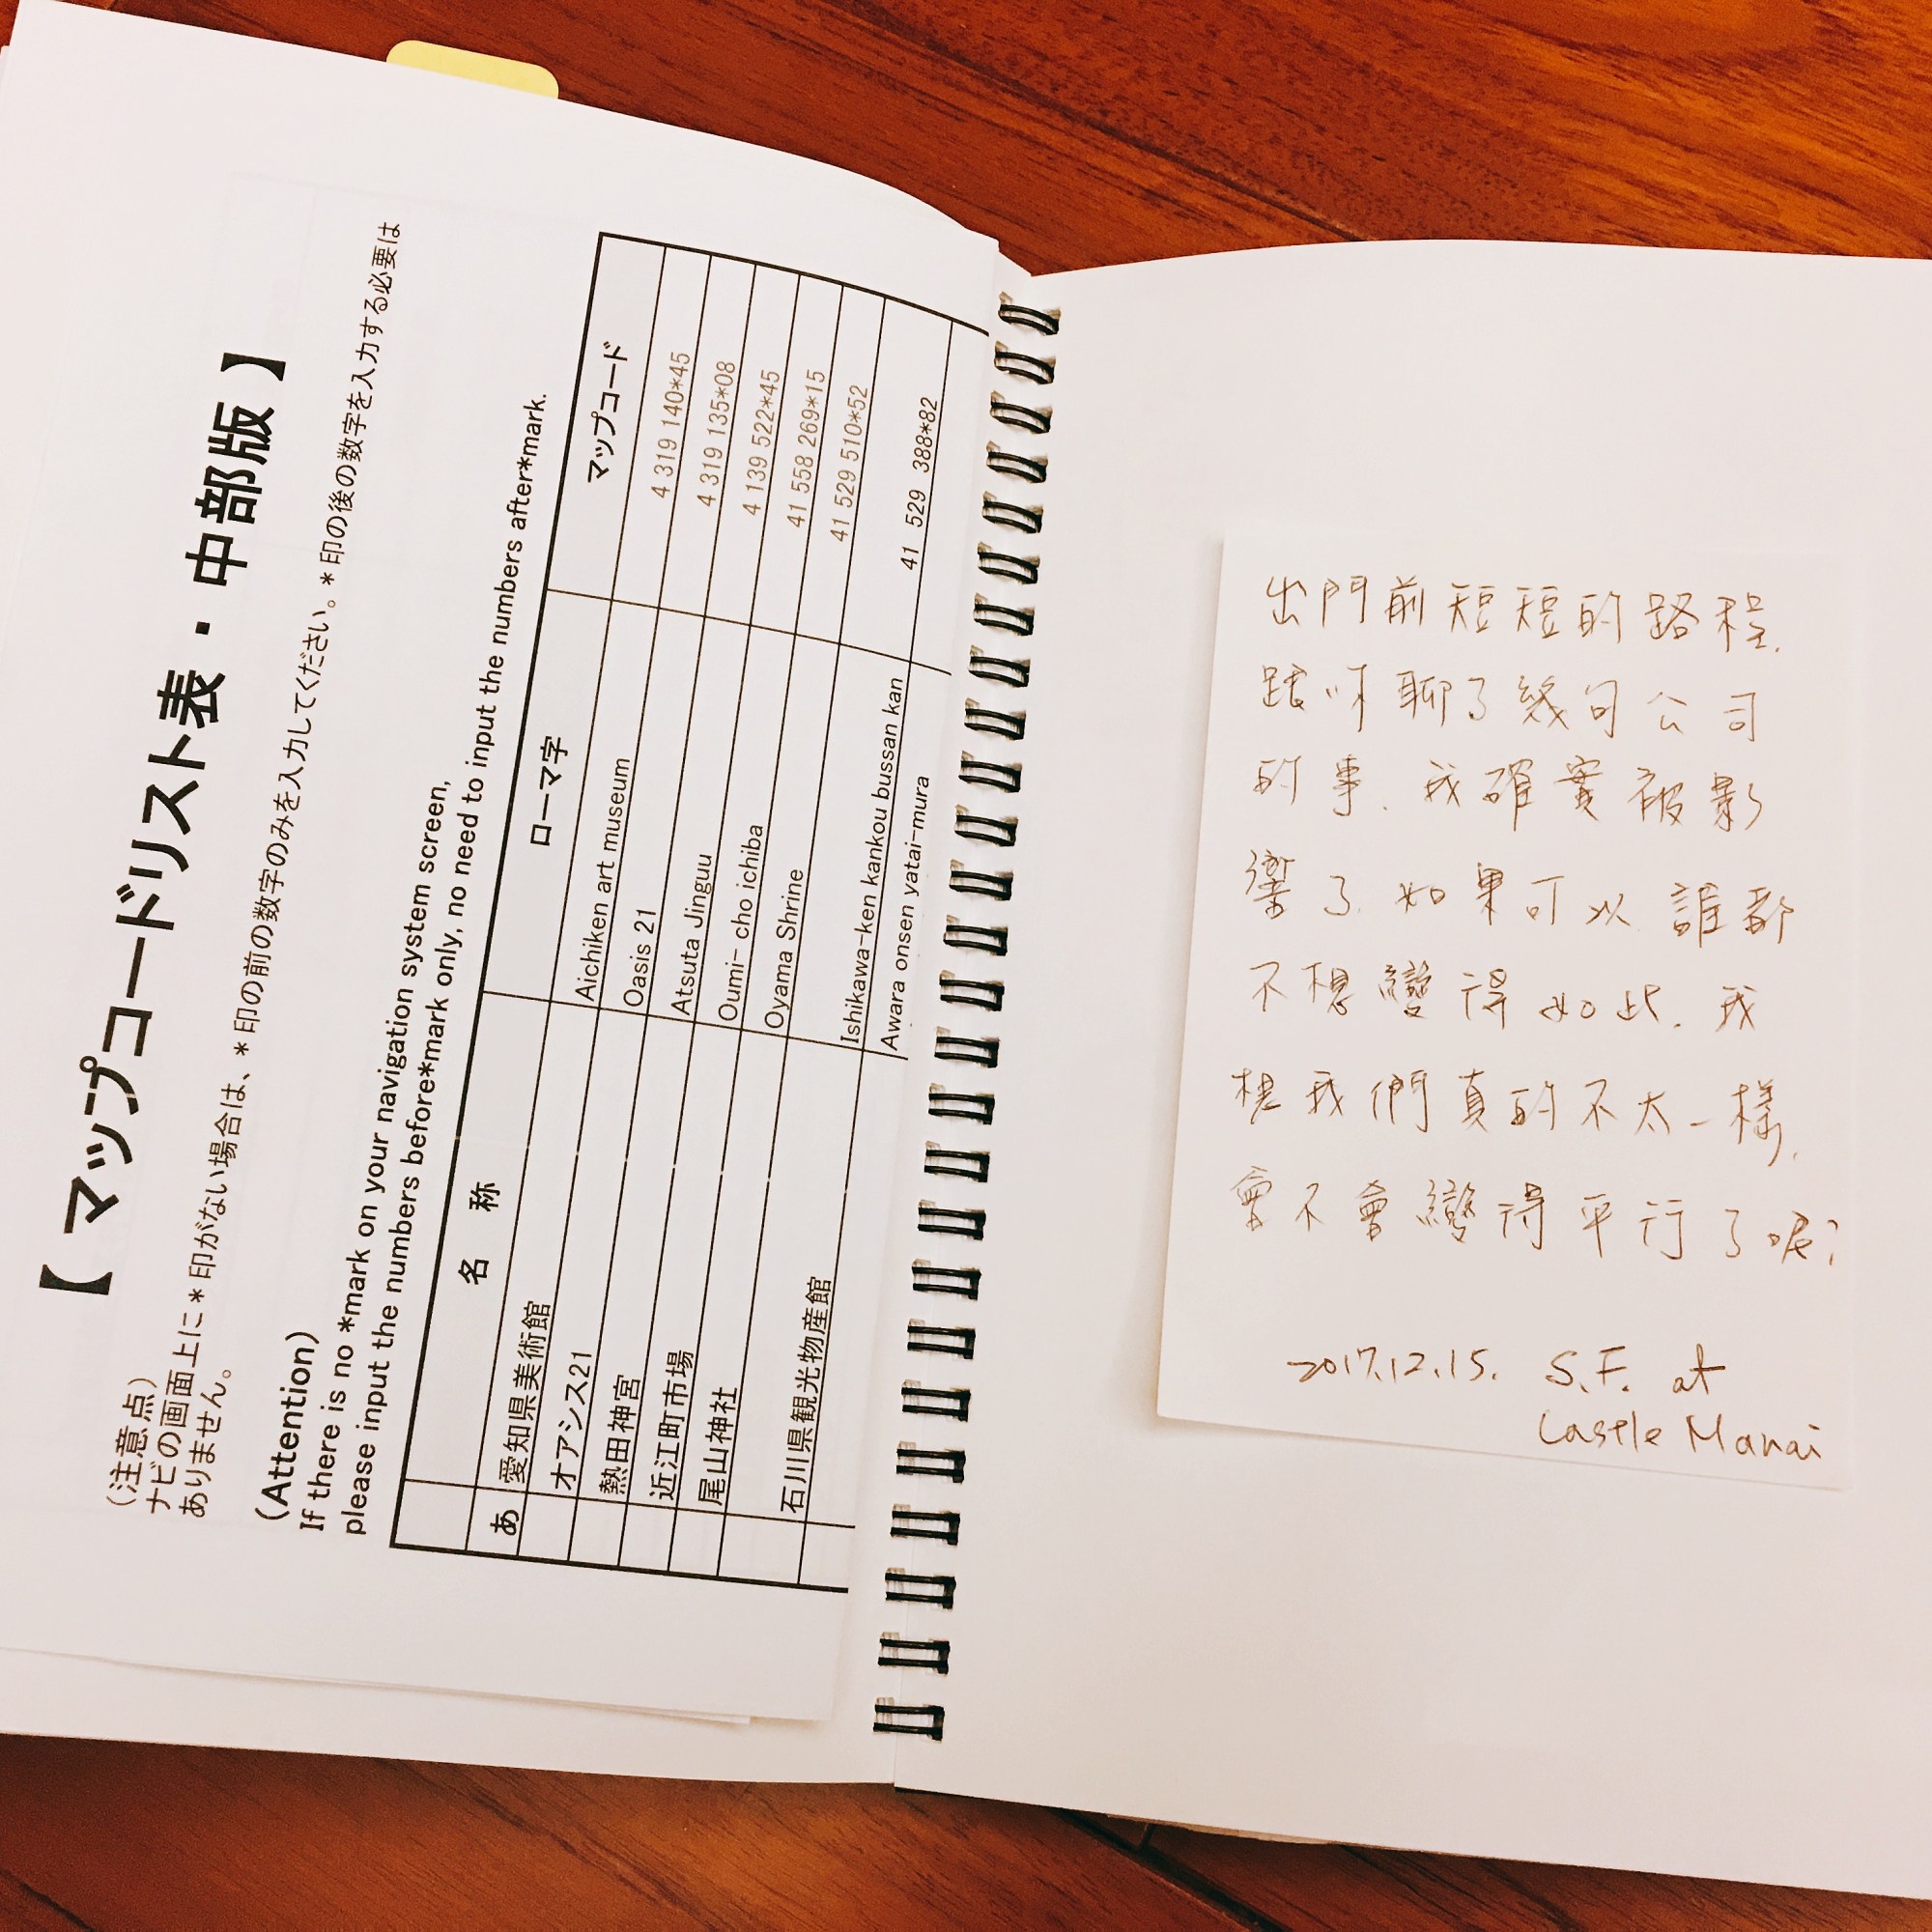 【 マップコードリスト表・中部版 】
（注意点）
ナビの画面上に＊印がない場合は、＊印の前の数字のみを入力してください。＊印の後の数字を入力する必要は
ありません。
(Attention)
If there is no *mark on your navigation system screen,
please input the numbers before*mark only, no need to input the numbers after*mark.
名　称 ローマ字 マップコード
あ 愛知県美術館 Aichiken art museum 4 319 140*45
オアシス21 Oasis 21 4 319 135*08
熱田神宮 Atsuta Jinguu 4 139 522*45
近江町市場 Oumi- cho ichiba 41 558 269*15
尾山神社 Oyama Shrine 41 529 510*52
石川県観光物産館 Ishikawa-ken kankou bussan kan 41 529 388*82
Awara onsen yatai-mura
出門前短短的路程.
聊了幾句公司
的事.我確實被影
響了.如果可以.誰都
不想變得如此.我
想我們真的不太一樣.
會不會變得平行了呢?
2017.12.15. S.F. at
Castle Manai